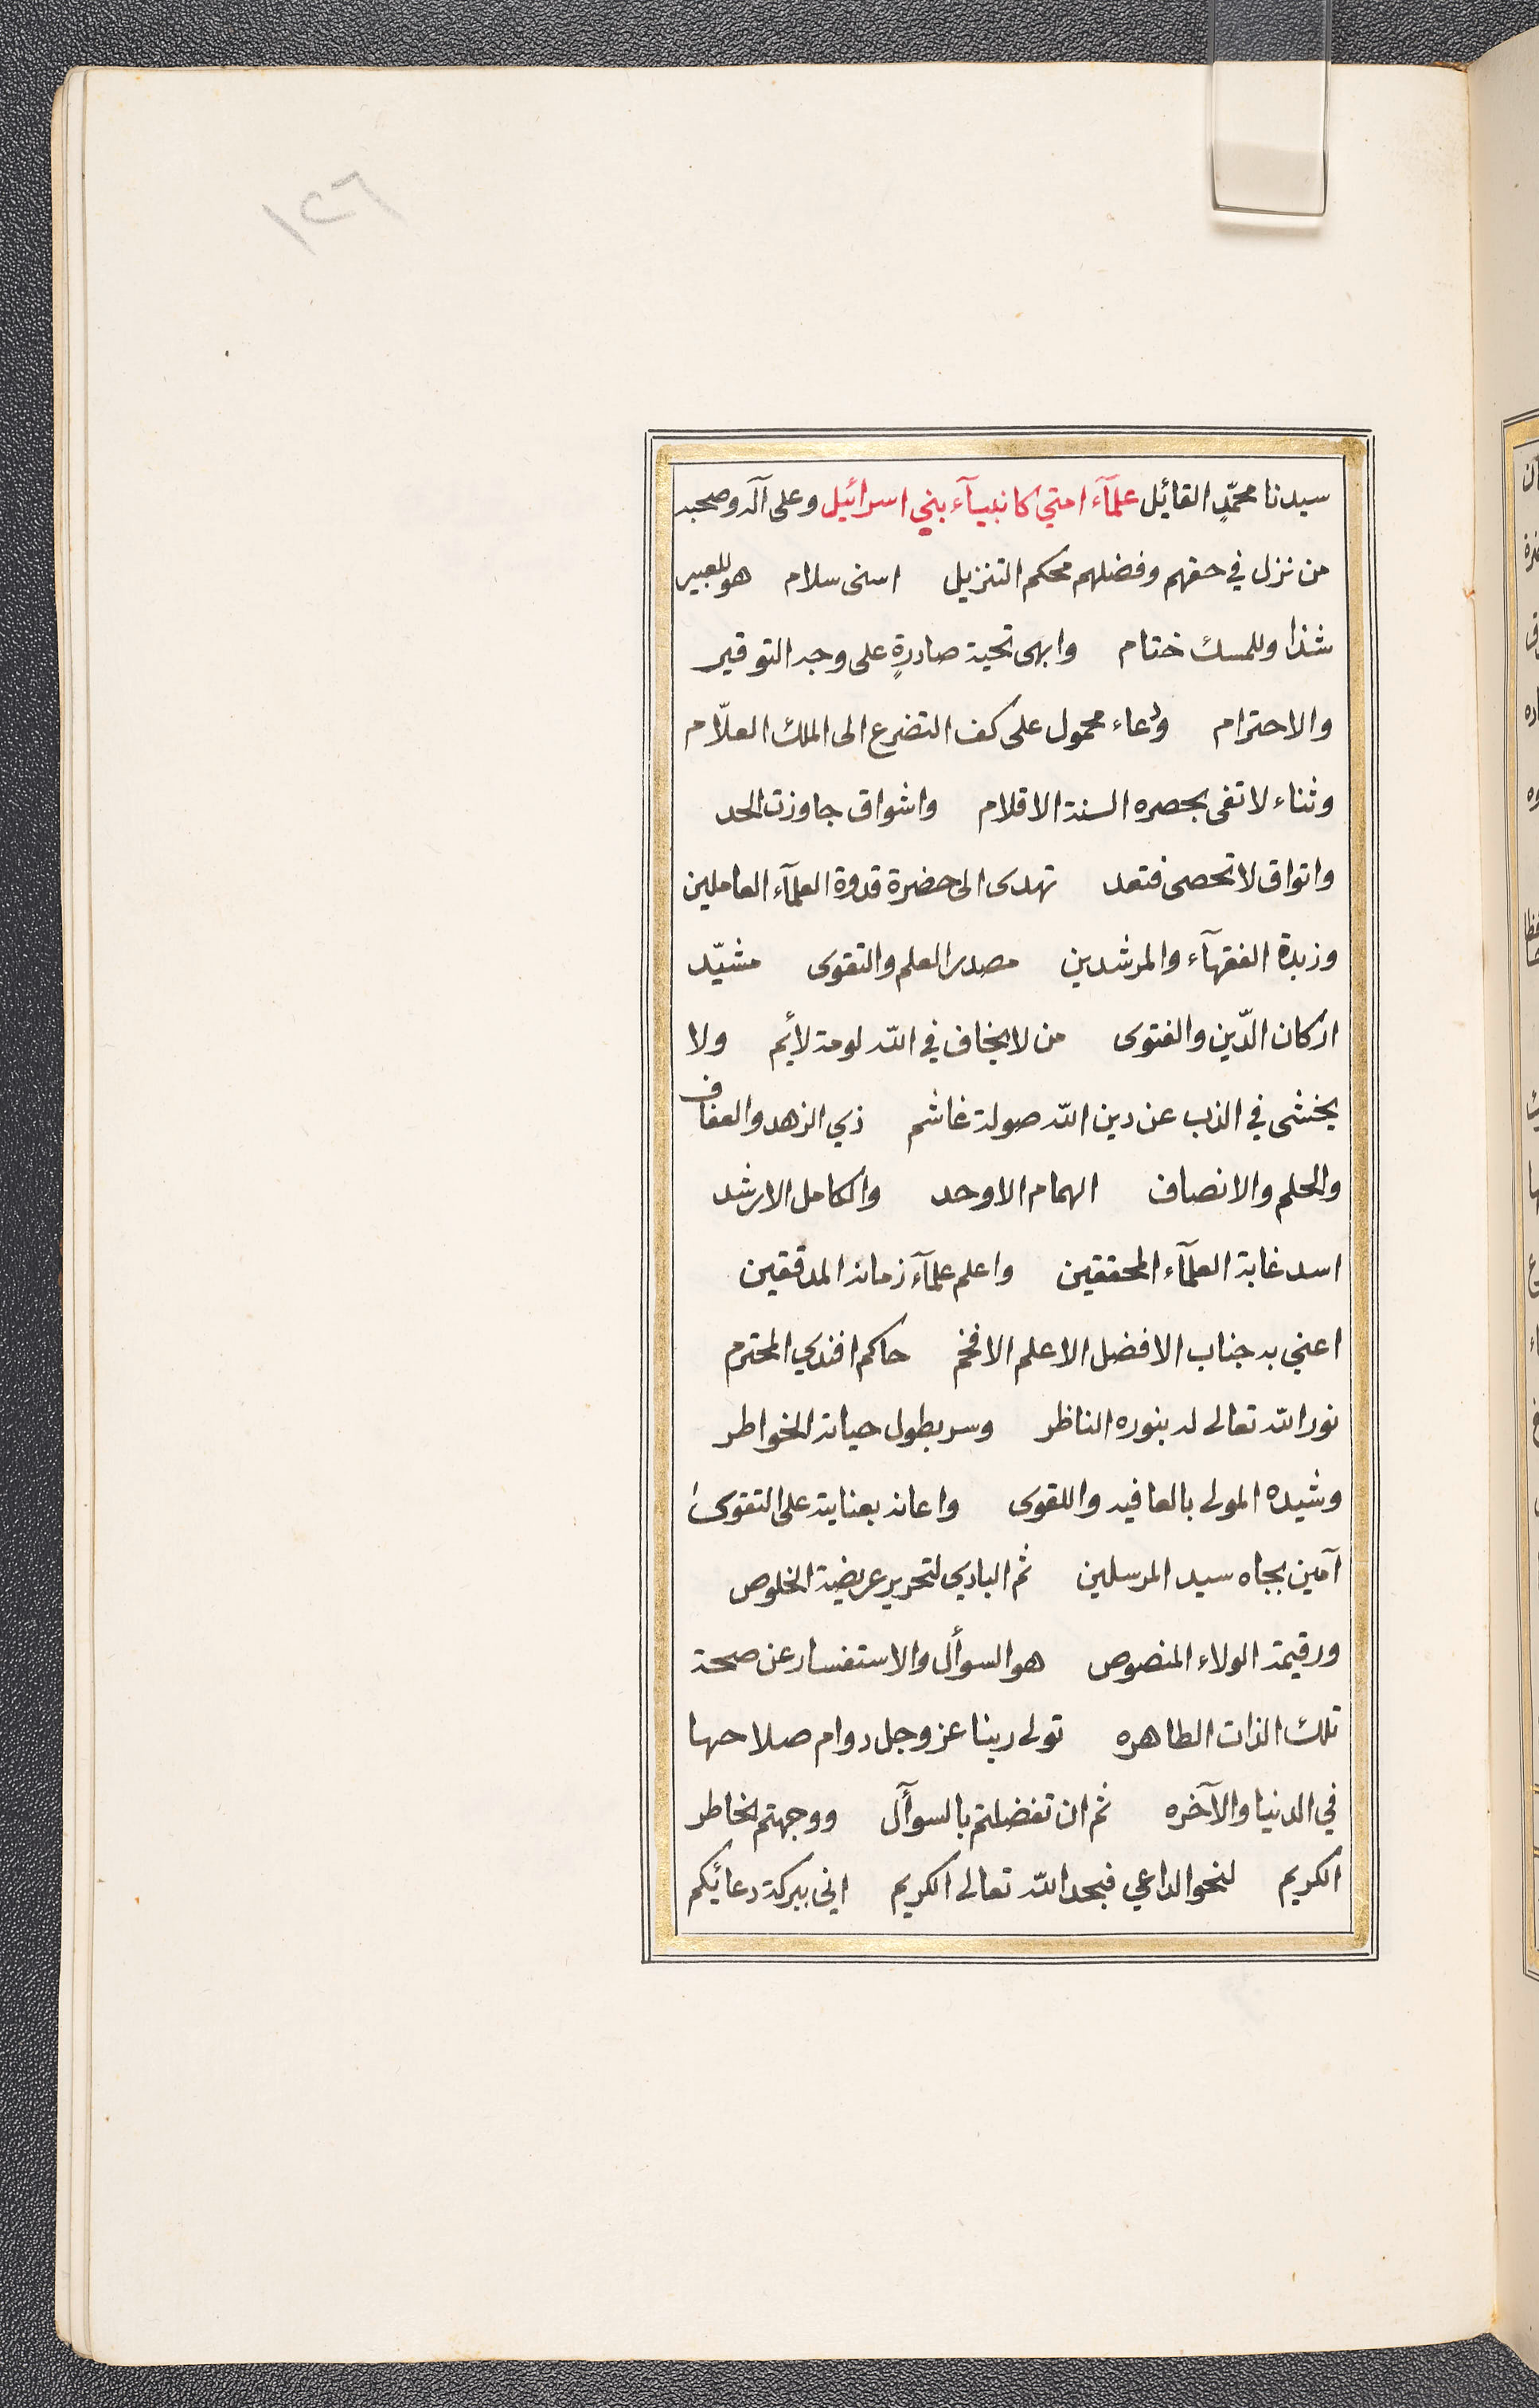 ١٢٦
سيدنا محمّدٍ القائيل علمآء امتي كانبيآء بني اسرائيل وعلى آله وصحبه
من نزل في حقهم وفضلهم محكم التنزيل اسنى سلام هو للعبير
شذا وللمسك ختام وابهى تحية صادرةٍ على وجه التوقير
والاحترام ودعاء محمول على كف التضرع الى الملك العلّام
وثناء لا تفى بحصره السنة الاقلام واشواق جاوزت الحد
واتواق لا تحصى فتعد تهدى الى حضرة قدوة العلمآء العاملين
وزبدة الفقهآء والمرشدين مصدر العلم والتقوى مشيّد
اركان الدّين والفتوى من لا يخاف في الله لومة لأيم ولا
يخشى في الذب عن دين الله صولة غاشم ذي الزهد والعفاف
والحلم والانصاف الهمام الاوحد والكامل الارشد
اسد غابة العلمآء المحققين واعلم علمآء زمانه المدققين
اعني به جناب الافضل الاعلم الافخم حاكم افندي المحترم
نور الله تعالى له بنوره الناظر وسر بطول حياته الخواطر
وشيده المولى بالعافيه واللقوى واعانه بعنايته على التقوى
آمين بجاه سيد المرسلين ثم البادي لتحرير عريضة الخلوص
ورقيمة الولاء المنصوص هو السوأل والاستفسار عن صحة
تلك الذات الطاهره تولى ربنا عز وجل دوام صلاحها
في الدنيا والآخره ثم ان تفضلتم بالسوآل ووجهتم الخاطر
الكريم لنحو الداعي فبحمد الله تعالى الكريم اني ببركة دعائيكم